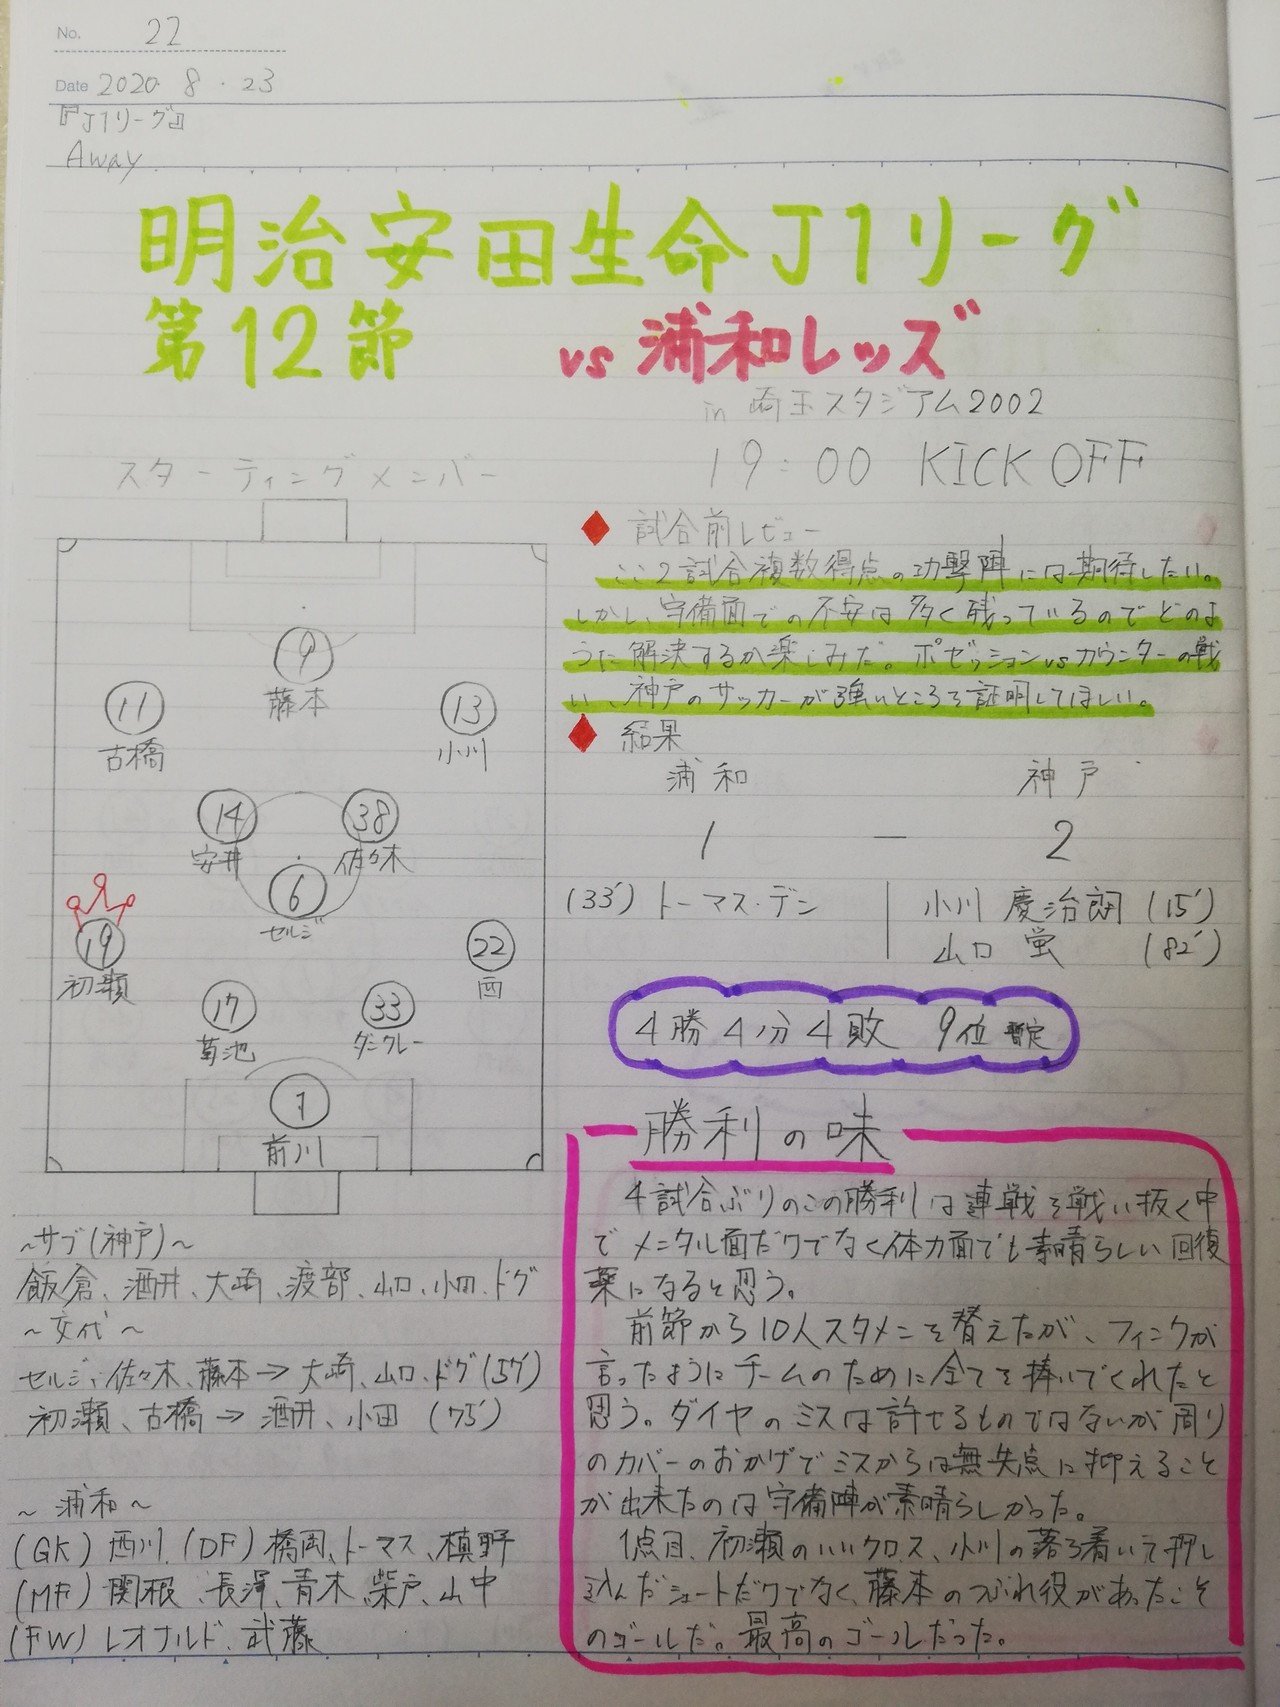 No. 22
Date 2020 8 . 23
『J1リーグ』
Away
明治安田生命J1リーグ
第12節 vs 浦和レッズ
in 埼玉スタジアム2002
19:00 KICK OFF
スターティングメンバー
9
藤本
11
古橋
13
小川
14
安井
38
佐々木
6
セルジ
19
初瀬
22
西
17
菊池
33
ダンクレー
1
前川
~サブ(神戸)~
飯倉、酒井、大崎、渡部、山口、小田、ドグ
~交代~
セルジ、佐々木、藤本→大崎、山口、ドグ(57')
初瀬、古橋→酒井、小田 (75')
~浦和~
(GK) 西川、(DF) 橋岡、トーマス、槙野
(MF) 関根、長澤、青木、柴戸、山中
(FW) レオナルド、武藤
試合前レビュー
ここ2試合複数得点の攻撃陣には期待したい。
しかし、守備面での不安は多く残っているのでどのよ
うに解決するか楽しみだ。ポゼッションvsカウンターの戦
い、神戸のサッカーが強いところを証明してほしい。
結果
浦和 神戸
1 − 2
(33') トーマス・デン | 小川 慶治朗 (15')
山口 蛍 (82')
4勝4分4敗 9位 暫定
勝利の味
4試合ぶりのこの勝利は連戦を戦い抜く中
でメンタル面だけでなく体力面でも素晴らしい回復
薬になると思う。
前節から10人スタメンを替えたが、フィンクが
言ったようにチームのために全てを捧いでくれたと
思う。ダイヤのミスは許せるものではないが周り
のカバーのおかげでミスからは無失点に抑えること
が出来たのは守備陣が素晴らしかった。
1点目、初瀬のいいクロス、小川の落ち着いて押し
込んだシュートだけでなく、藤本のつぶれ役があったこそ
のゴールだ。最高のゴールだった。